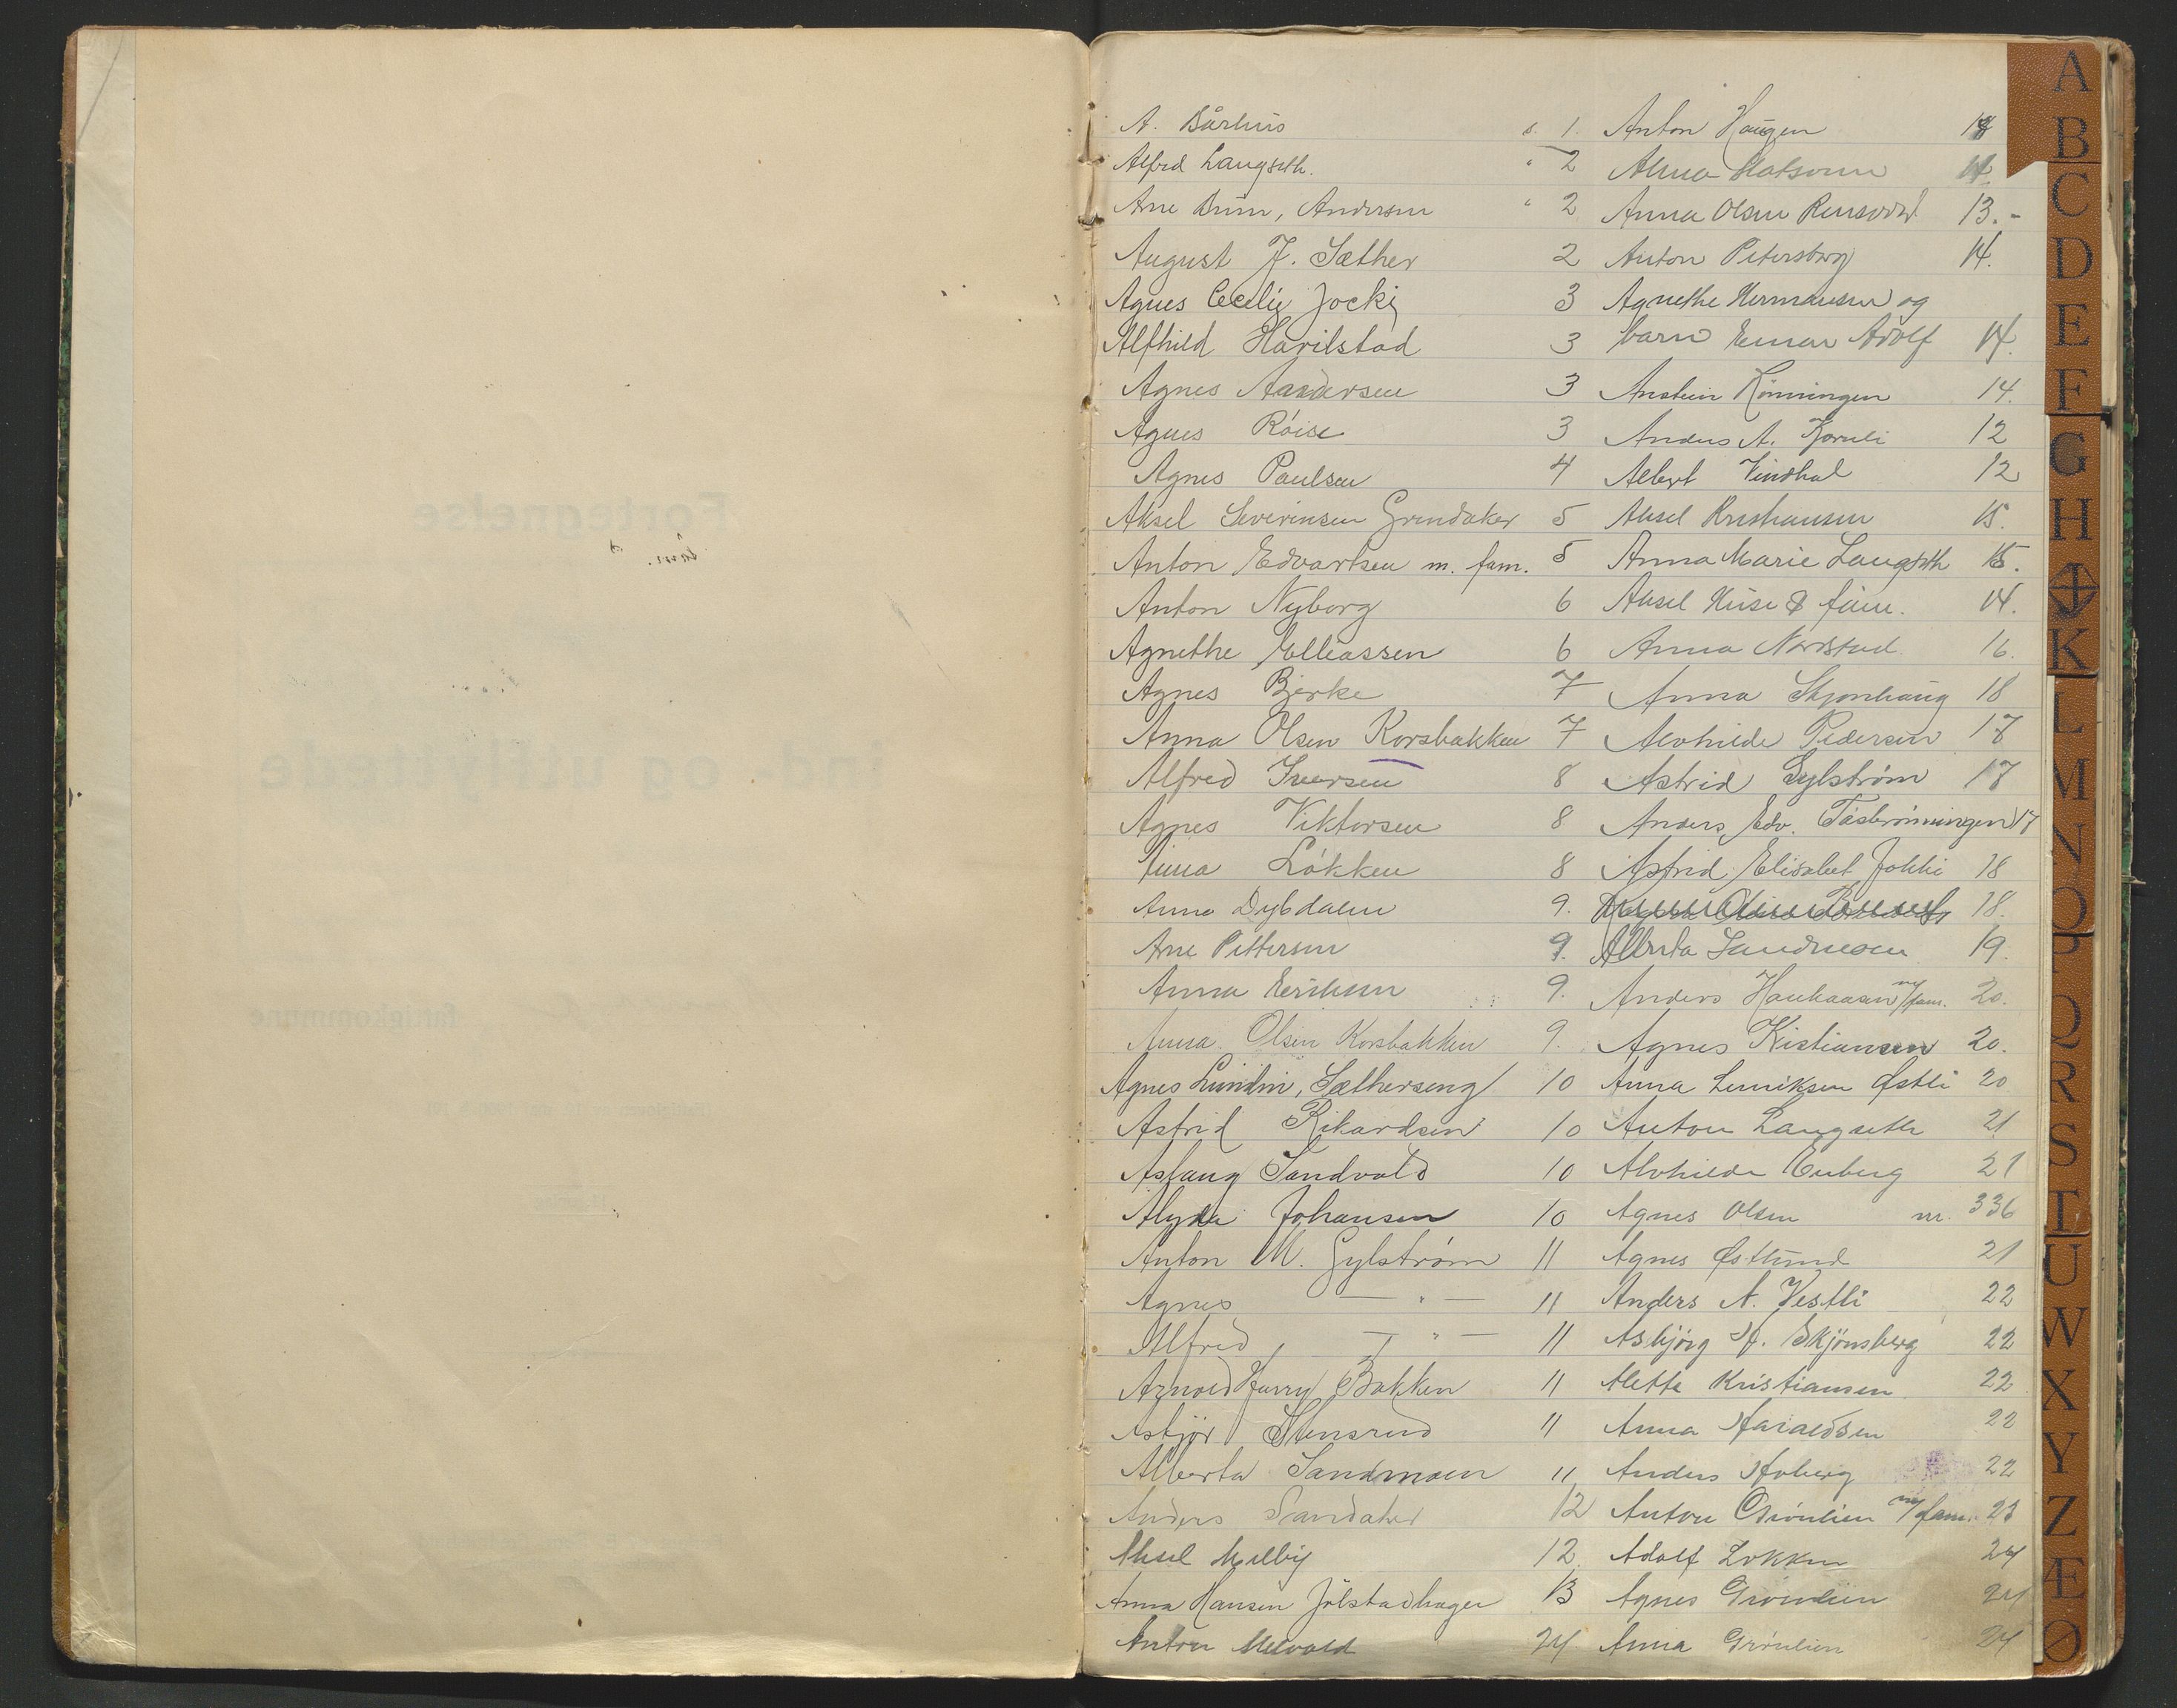 A. Bårhus s. 1.
Alfred Langseth. " 2
Arne Brun, Andersen " 2
August J. Sæther 2
Agnes Cecilie Jocki 3
Alfhild Harilstad 3
Agnes Aandersen 3
Agnes Röise 3
Agnes Paulsen 4
Aksel Severinsen Grindaker 5
Anton Edvartsen m. fam. 5
Anton Nyborg 6
Agnethe Elleassen 6
Agnes Bjerke 7
Anna Olsen Korsbakken 7
Alfred Iversen 8
Agnes Viktorsen 8
Anna Løkken 8
Anna Dybdalen 9.
Arne Pettersen 9.
Anna Eriksen 9.
Anna Olsen Korsbakken 9.
Agnes Lundin, Sætherseng 10
Astrid Rikardsen 10
Aslaug Sandvold 10
Alyda Johansen 10
Anton M. Gylstrøm 11
Agnes — " — 11
Alfred — " — 11
Arnold Harry Bakken 11
Asbjør Stensrud 11
Alberta Sandmoen 11
Anders Sandaker 12
Aksel Melby 12.
Anna Hansen Jölstadhagen 13
Anton Melvold 24
Anton Haugen 14
Alma Matsonn 14.
Anna Olsen 13.-
Anton Petersborg 14.
Agnethe Hermansen og
barn Einar Adolf 14.
Anstein Rönningen 14.
Anders A. Korneli 12
Albert Vindhal 12
Aksel Kristiansen 15.
Anna Marie Langseth 15.
Aksel Huse & fam. 14.
Anna Nordstad 16.
Anna Skjonhaug 18
Alvhilde Pedersen 17
Astrid Gylstrøm 17
Anders Edv. Tåsbrönningen 17
Astrid Elisabet Jokki 18
18.
Alberta Sandmoen 19.
Anders Haukaasen m/fam. 20.
Agnes Kistiansen 20.
Anna Henriksen Østli 20
Anton Langseth 21
Alvhilde Enberg 21
Agnes Olsen nr. 336
Agnes Østlund 21
Anders N. Vestli 22
Asbjörg H. Skjönsberg 22
Alette Kristiansen 22
Anna Haraldsen 22
Anders Hoberg 22
Anton Grönlien m/fam. 23
Adolf Løkken 24
Agnes Grönlien 24
Anna Grönlien 24
A
B
C
D
E
F
G
H
I J
K
L
M
N
O
P
Q
R
S
T
U
W
X
Y
Z
Æ
Ø